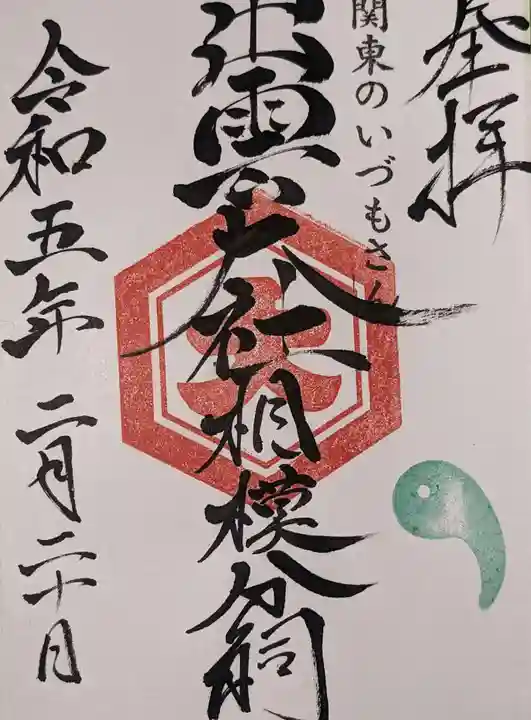 登拝
関東のいづもさん
出雲大社相模分祠
令和五年二月二十日